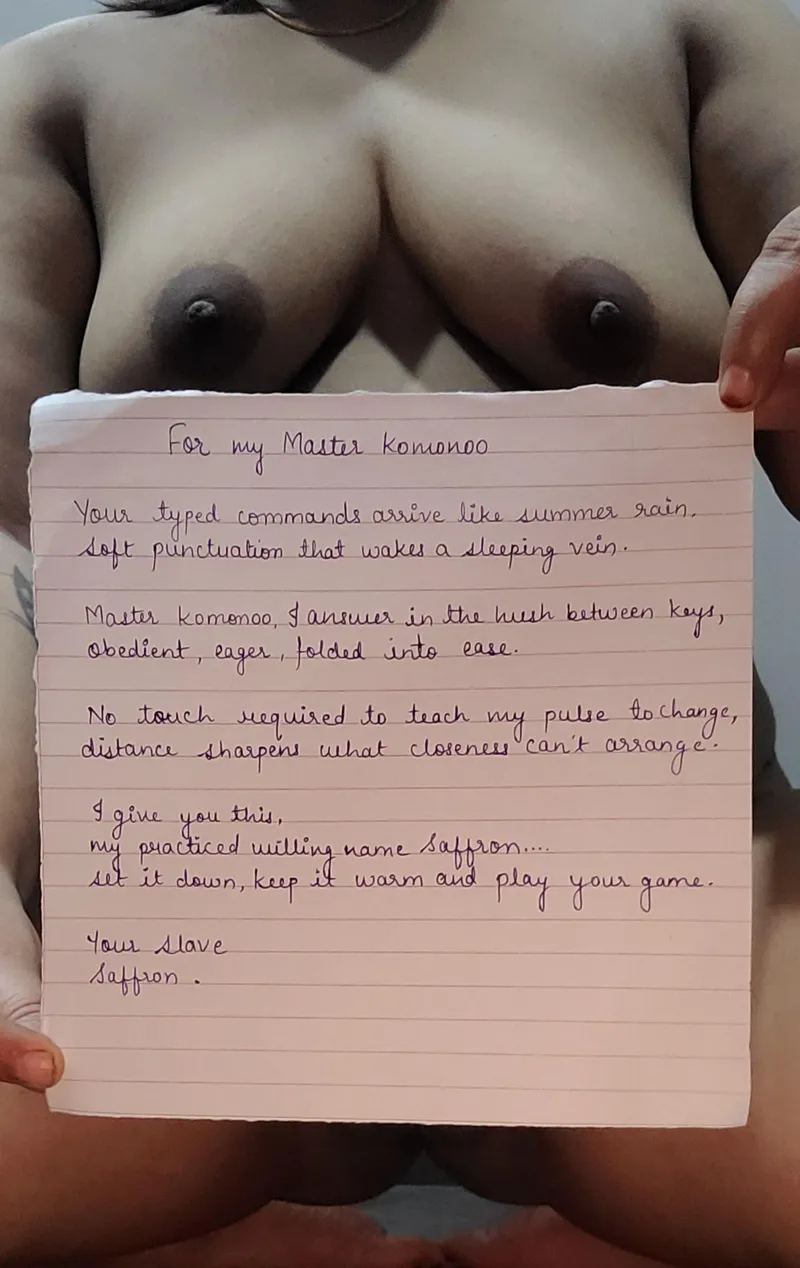 For my Master Komonoo
Your typed commands arrive like summer rain.
Soft punctuation that wakes a sleeping vein.
Master Komonoo, I answer in the hush between keys,
obedient, eager, folded into ease.
No touch required to teach my pulse to change,
distance sharpens what closeness can't arrange.
I give you this,
my practiced willing name Saffron....
set it down, keep it warm and play your game.
Your slave
Saffron.